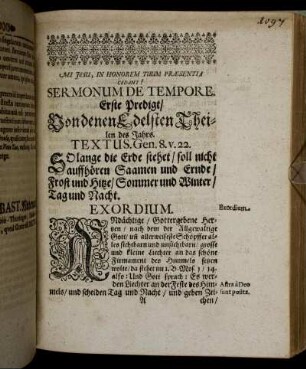 1697
MI JESU, IN HONOREM TUUM PRÆSENTIA
CEDANT!
SERMONUM DE TEMPORE.
Erste Predigt/
Von denen Edelsten Thei-
len des Jahrs.
TEXTUS. Gen. 8. v. 22.
SOlange die Erde stehet/ soll nicht
auffhören Saamen und Ernde/
Frost und Hitze/ Sommer und Winter/
Tag und Nacht.
EXORDIUM.
Exordium.
ANdächtige / Gottergebene Her-
tzen / nach dem der Allgewaltige
Gott/ und allerweiseste Schöpffer al-
les sichtbarn und unsichtbarn/ grosse
und kleine Liechter an das schöne
Firmament des Himmels setzen
wolte/ da stehet im 1. B. Mos. 1/ 14.
also: Und Gott sprach: Es wer-
den Liechter an der Feste des Him-
mels/ und scheiden Tag und Nacht / und geben Zei-
Astra à Deo
sunt posita.
A
chen/